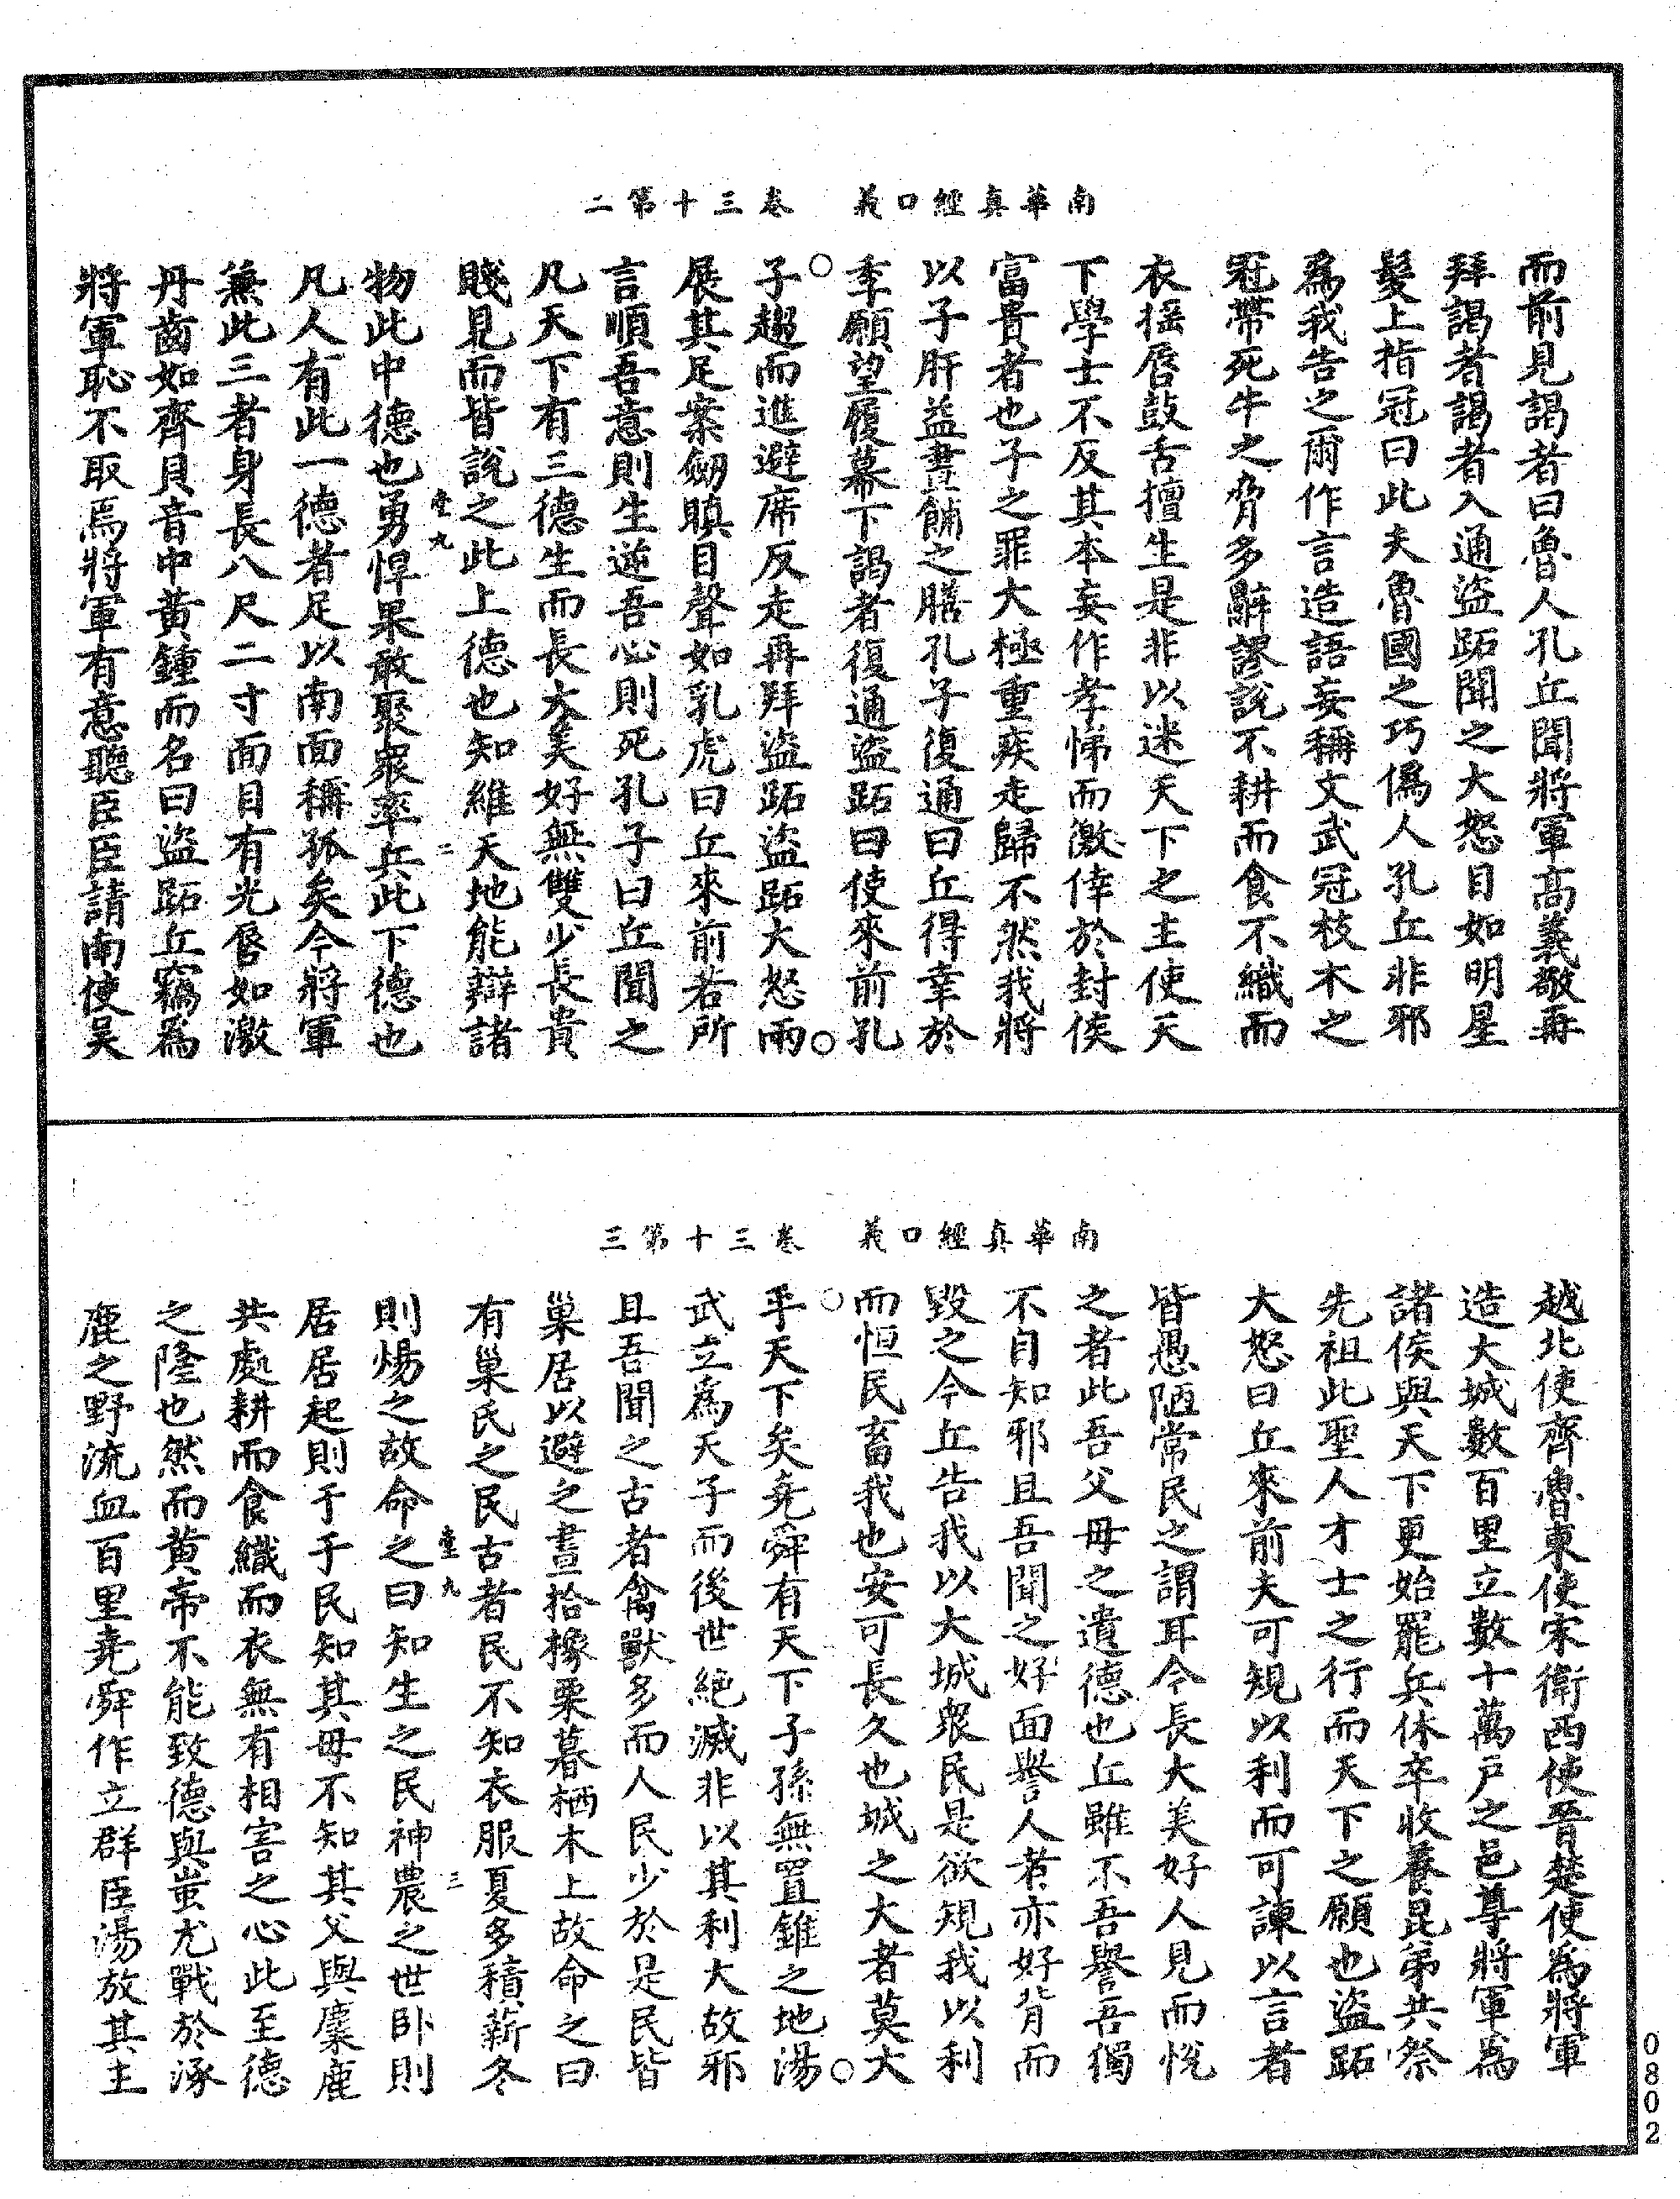 南華真經口義　卷三十第二
而前見謁者曰魯人孔丘聞將軍高義敬再
拜謁者謁者入通盜跖聞之大怒目如明星
髮上指冠曰此夫魯國之巧偽人孔丘非邪
為我告之爾作言造語妄稱文武冠枝木之
冠帶死牛之脅多辭謬說不耕而食不織而
衣揺唇鼓舌擅生是非以迷天下之主使天
下學士不反其本妄作孝悌而激倖於封侯
富貴者也子之罪大極重疾走歸不然我將
以子肝益晝餔之膳孔子復通曰丘得幸於
季願望履幕下謁者復通盜跖曰使來前孔
子趨而進避席反走再拜盜跖盜跖大怒兩
展其足案劒瞋目聲如乳虎曰丘來前若所
言順吾意則生逆吾心則死孔子曰丘聞之
凡天下有三德生而長大美好無雙少長貴
賤見而皆說之此上德也知維天地能辯諸
壹九　二
物此中德也勇悍果敢聚眾率兵此下德也
凡人有此一德者足以南面稱孤矣今將軍
兼此三者身長八尺二寸面目有光唇如激
丹齒如齊貝音中黃鍾而名曰盜跖丘竊為
將軍恥不取焉將軍有意聽臣臣請南使吳
南華真經口義　卷三十第三
越北使齊魯東使宋衛西使晉楚使為將軍
造大城數百里立數十萬戶之邑尊將軍為
諸侯與天下更始罷兵休卒收養昆弟共祭
先祖此聖人才士之行而天下之願也盜跖
大怒曰丘來前夫可規以利而可諫以言者
皆愚陋常民之謂耳今長大美好人見而悅
之者此吾父母之遺德也丘雖不吾譽吾獨
不自知邪且吾聞之好面譽人者亦好背而
毀之今丘告我以大城眾民是欲規我以利
而恒民畜我也安可長久也城之大者莫大
乎天下矣堯舜有天下子孫無置錐之地湯
武立為天子而後世絕滅非以其利大故邪
且吾聞之古者禽獸多而人民少於是民皆
巢居以避之晝拾橡栗暮栖木上故命之曰
有巢氏之民古者民不知衣服夏多積薪冬
壹九　三
則煬之故命之曰知生之民神農之世卧則
居居起則于于民知其母不知其父與麋鹿
共處耕而食織而衣無有相害之心此至德
之隆也然而黃帝不能致德與蚩尤戰於涿
鹿之野流血百里堯舜作立群臣湯放其主
0802